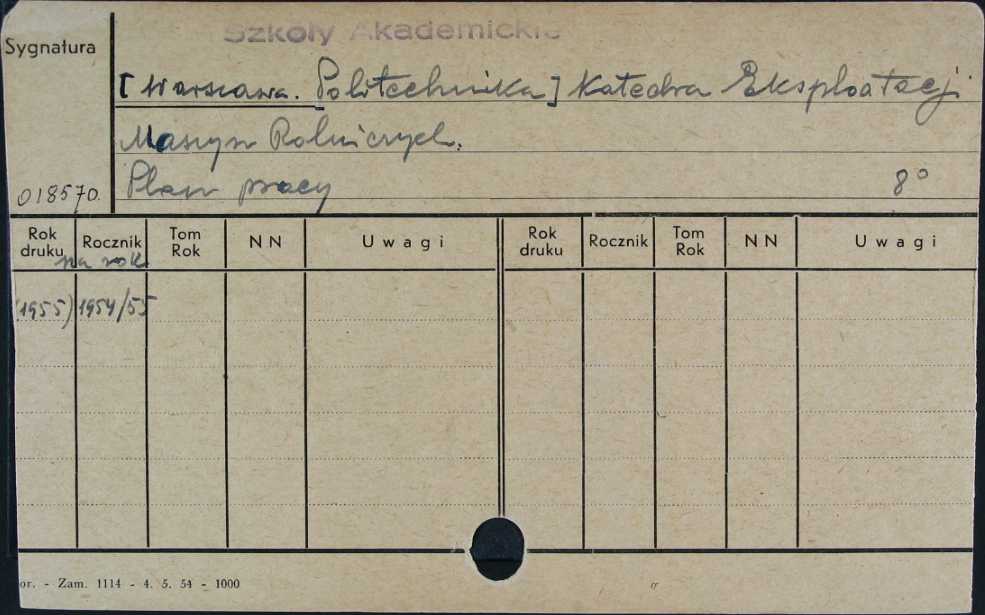 Szkoły Akademickie
Sygnatura
[Warszawa. Politechnika] Katedra Eksploatacji
Maszyn Rolniczych.
018570. Plan pracy 8°
Rok druku Rocznik Tom Rok NN Uwagi Rok druku Rocznik Tom Rok NN Uwagi
na rok
(1955) 1954/55
or. - Zam. 1114 - 4. 5. 54 - 1000